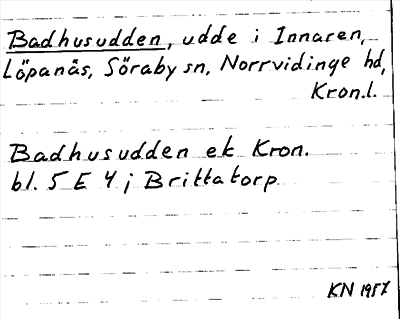 Badhusudden, udde i Innaren,
Löpanäs, Söraby sn, Norrvidinge hd,
Kron.l.
Badhusudden ek Kron.
bl. 5 E 4 j Brittatorp
KN 1957